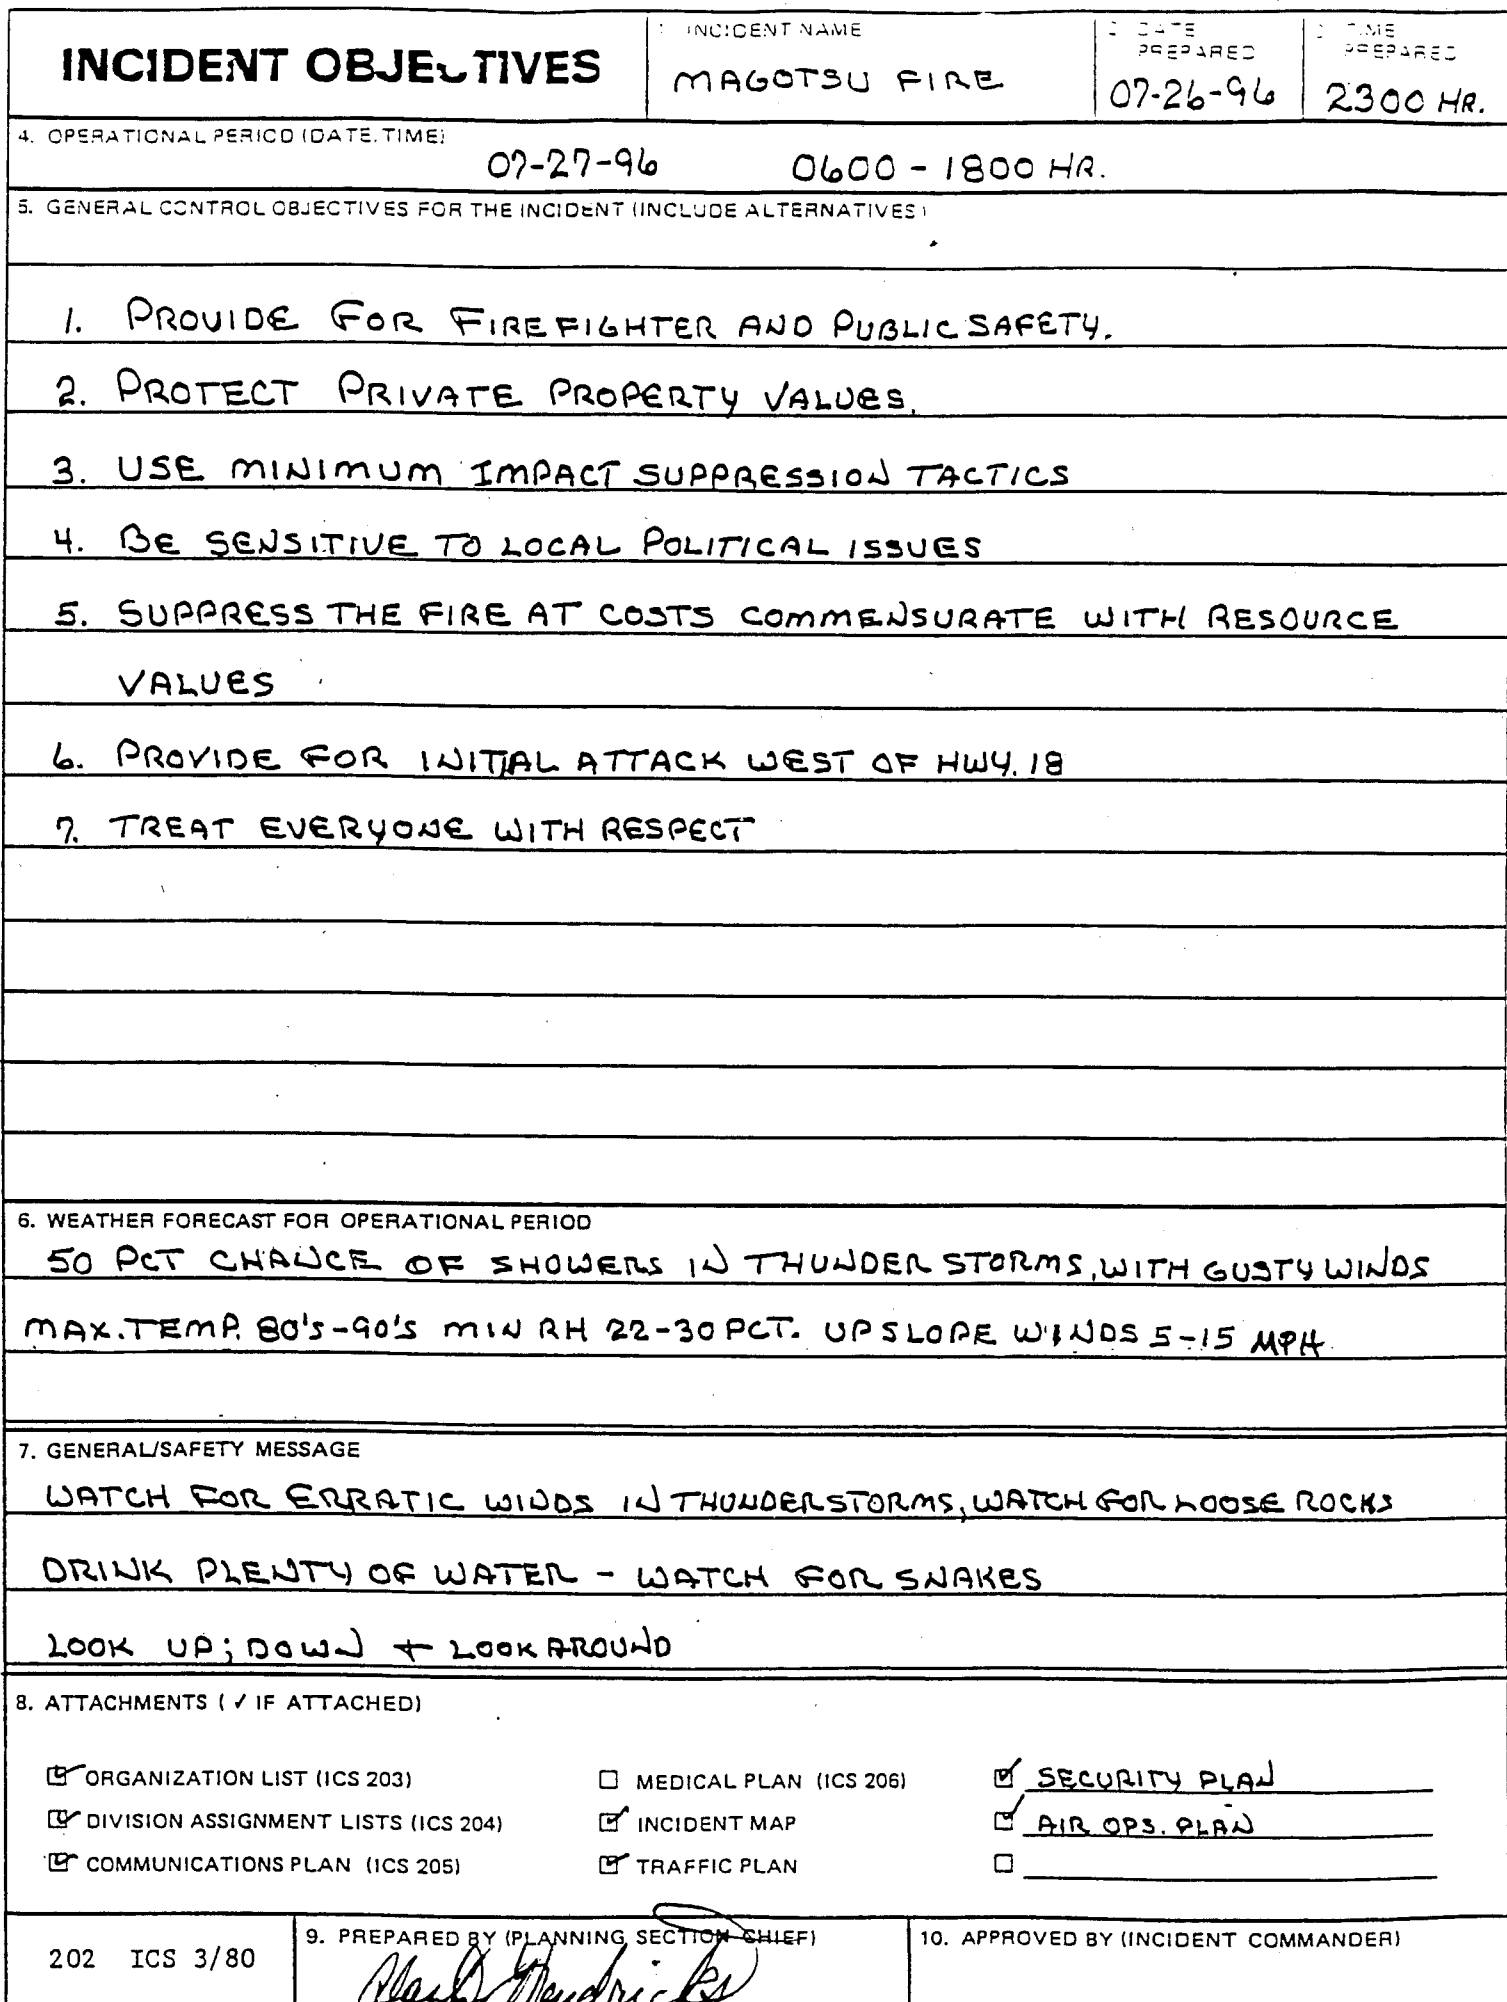 INCIDENT OBJECTIVES
1. INCIDENT NAME
MAGOTSU FIRE
2. DATE
PREPARED
07-26-96
3. TIME
PREPARED
2300 HR.
4. OPERATIONAL PERIOD (DATE. TIME)
07-27-96 0600 - 1800 HR.
5. GENERAL CONTROL OBJECTIVES FOR THE INCIDENT (INCLUDE ALTERNATIVES)
1. PROVIDE FOR FIREFIGHTER AND PUBLIC SAFETY.
2. PROTECT PRIVATE PROPERTY VALUES.
3. USE MINIMUM IMPACT SUPPRESSION TACTICS
4. BE SENSITIVE TO LOCAL POLITICAL ISSUES
5. SUPPRESS THE FIRE AT COSTS COMMENSURATE WITH RESOURCE
VALUES
6. PROVIDE FOR INITIAL ATTACK WEST OF HWY. 18
7. TREAT EVERYONE WITH RESPECT
6. WEATHER FORECAST FOR OPERATIONAL PERIOD
50 PCT CHANCE OF SHOWERS IN THUNDER STORMS, WITH GUSTY WINDS
MAX. TEMP. 80's-90's MIN RH 22-30 PCT. UPSLOPE WINDS 5-15 MPH
7. GENERAL/SAFETY MESSAGE
WATCH FOR ERRATIC WINDS IN THUNDERSTORMS, WATCH FOR LOOSE ROCKS
DRINK PLENTY OF WATER - WATCH FOR SNAKES
LOOK UP; DOWN + LOOK AROUND
8. ATTACHMENTS ( ✓ IF ATTACHED)
☑ ORGANIZATION LIST (ICS 203) ☐ MEDICAL PLAN (ICS 206) ☑ SECURITY PLAN
☑ DIVISION ASSIGNMENT LISTS (ICS 204) ☑ INCIDENT MAP ☑ AIR OPS. PLAN
☑ COMMUNICATIONS PLAN (ICS 205) ☑ TRAFFIC PLAN ☐
202 ICS 3/80
9. PREPARED BY (PLANNING SECTION CHIEF)
Hendricks
10. APPROVED BY (INCIDENT COMMANDER)